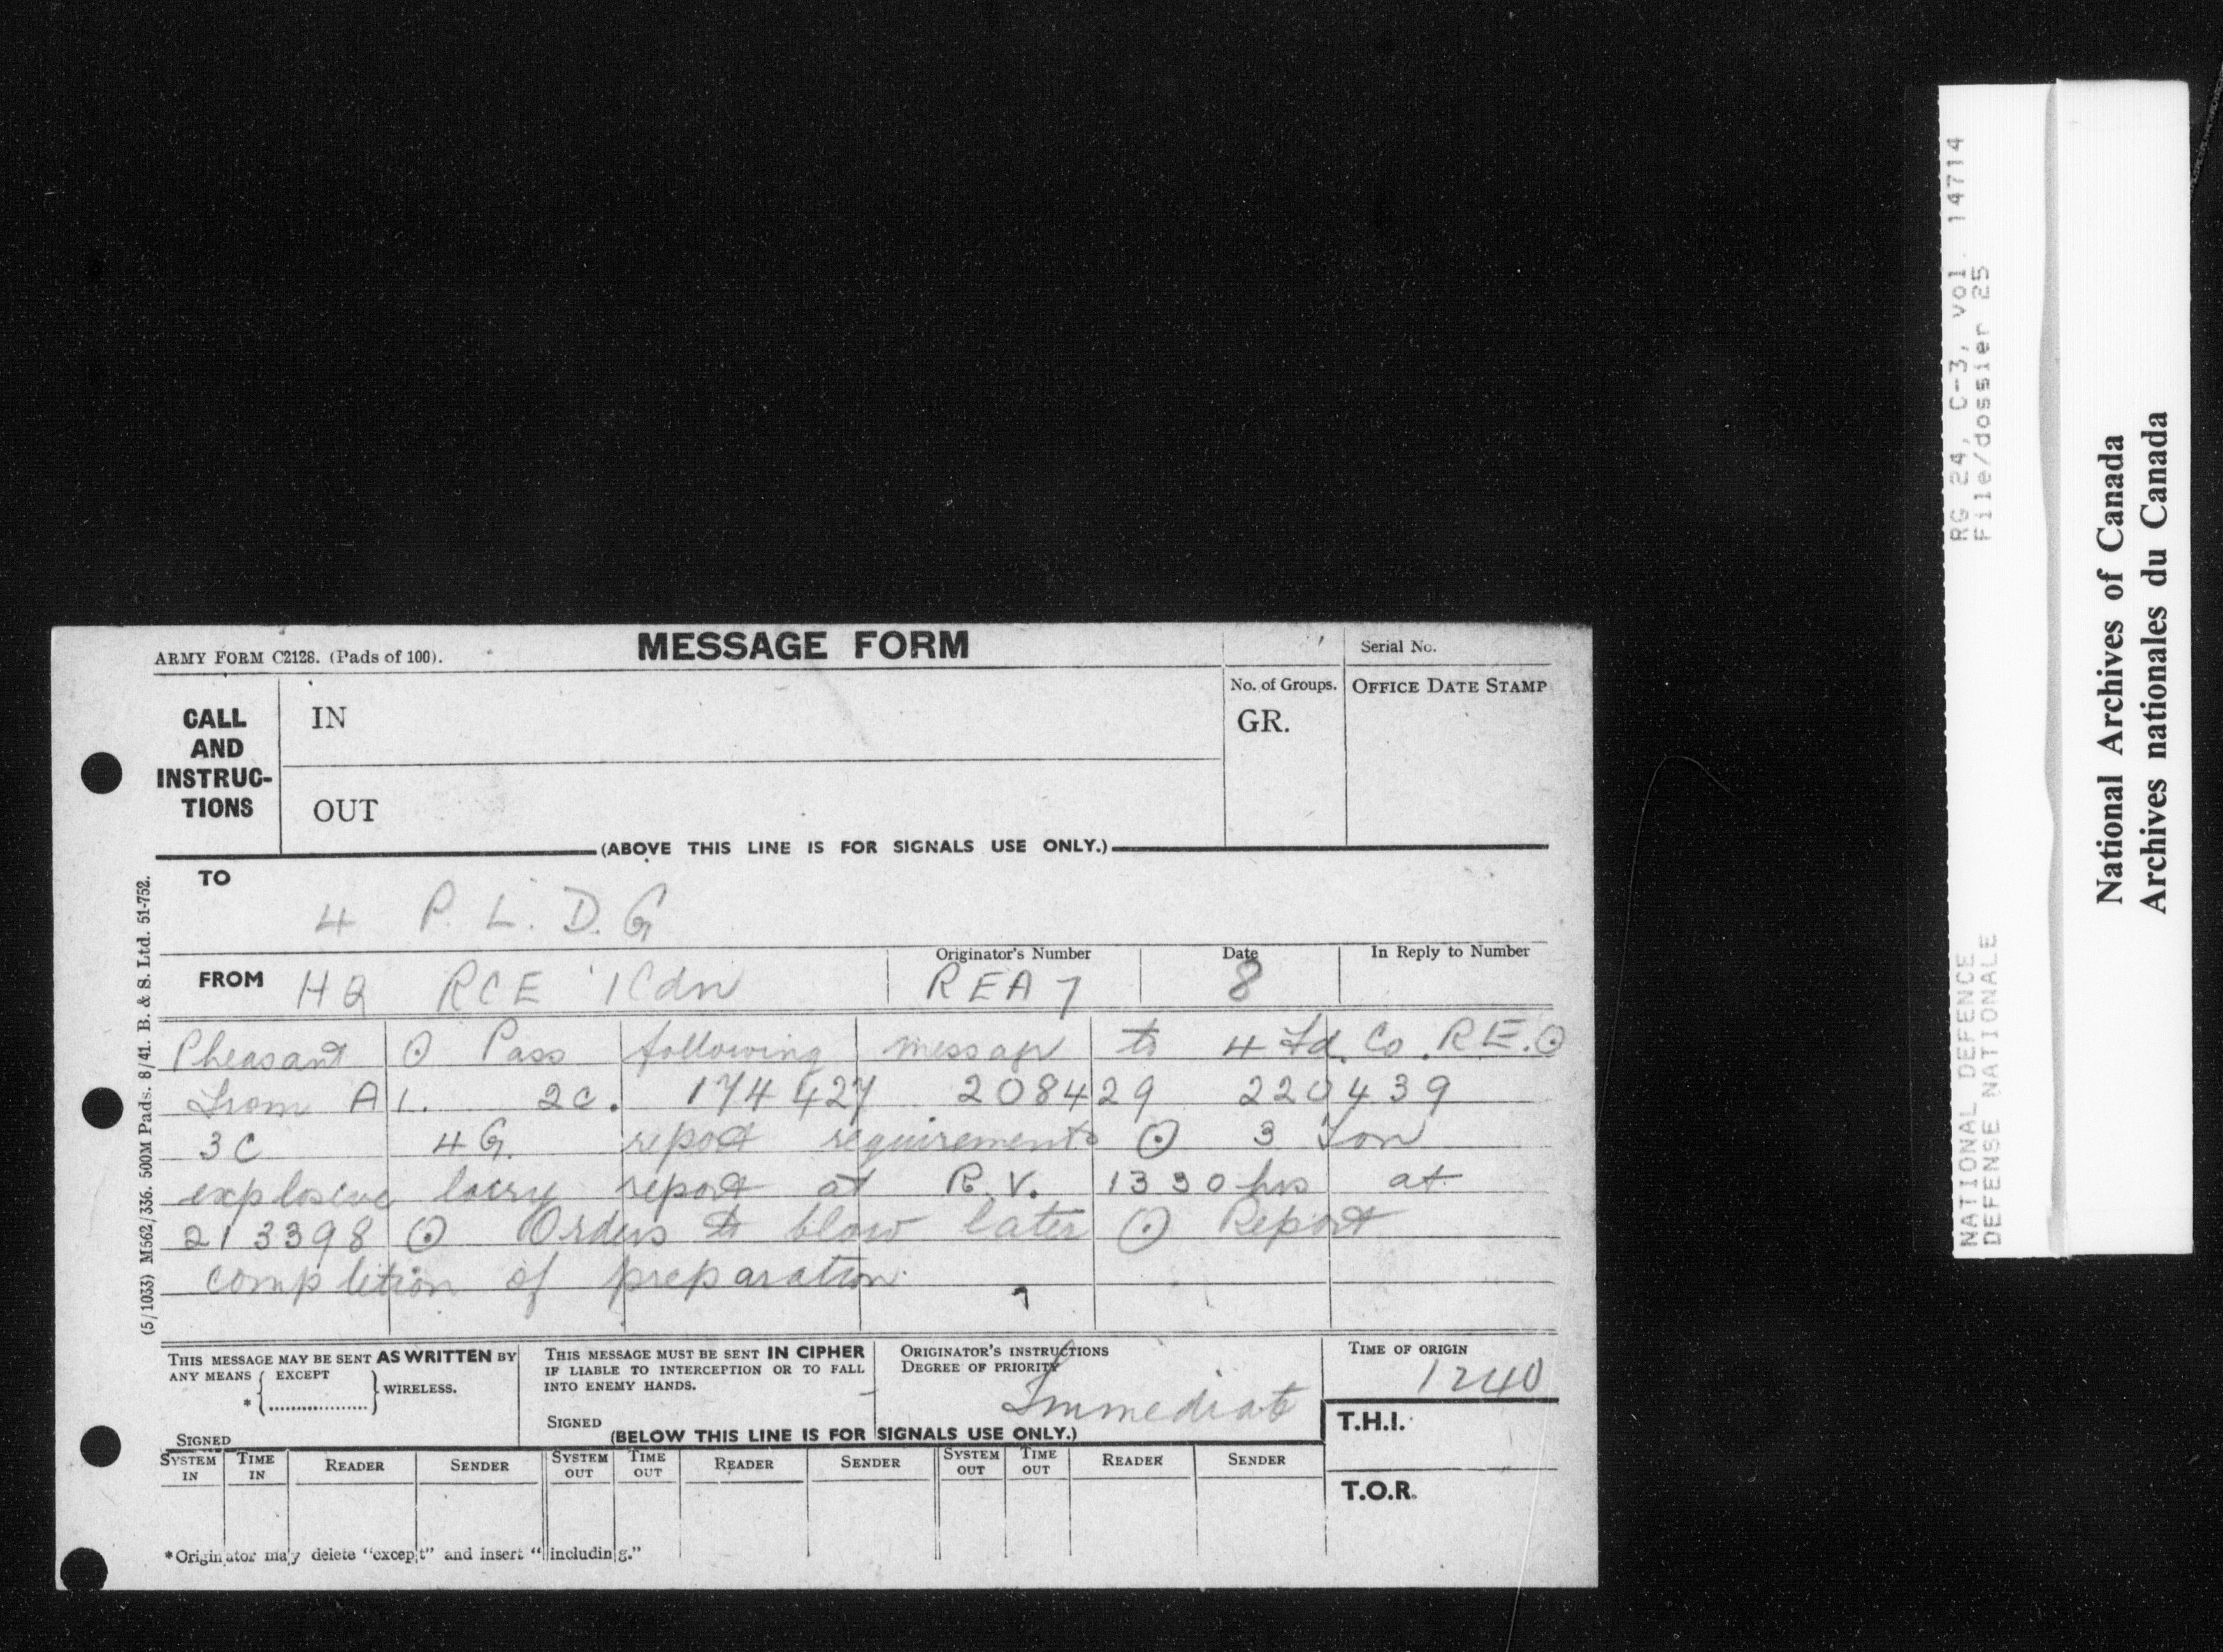 ARMY FORM C2128. (Pads of 100).
MESSAGE FORM
Serial No.
CALL AND INSTRUC-TIONS
IN
No. of Groups.
GR.
OFFICE DATE STAMP
OUT
(ABOVE THIS LINE IS FOR SIGNALS USE ONLY.)
TO
4 P. L. D. G
FROM HQ RCE 1 Cdn
Originator's Number
REA 7
Date
8
In Reply to Number
Pheasant ⊙ Pass following message to 4 Fd. Co. R.E. ⊙
From A 1. 2C. 174427 208429 220439
3C 4G. report requirements ⊙ 3 Ton
explosive lorry report at R.V. 1330 hrs at
213398 ⊙ Orders to blow later ⊙ Report
completion of preparation.
(5/1033) M562/336. 500M Pads. 8/41. B. & S. Ltd. 51-752.
THIS MESSAGE MAY BE SENT AS WRITTEN BY
ANY MEANS { EXCEPT
* { .................. } WIRELESS.
SIGNED
THIS MESSAGE MUST BE SENT IN CIPHER
IF LIABLE TO INTERCEPTION OR TO FALL
INTO ENEMY HANDS.
SIGNED
ORIGINATOR'S INSTRUCTIONS
DEGREE OF PRIORITY
Immediate
TIME OF ORIGIN
1240
(BELOW THIS LINE IS FOR SIGNALS USE ONLY.)
T.H.I.
SYSTEM IN TIME IN READER SENDER SYSTEM OUT TIME OUT READER SENDER SYSTEM OUT TIME OUT READER SENDER
T.O.R.
*Originator may delete "except" and insert "including."
RG 24, C-3, vol. 14714
File/dossier 25
NATIONAL DEFENCE
DEFENSE NATIONALE
National Archives of Canada
Archives nationales du Canada